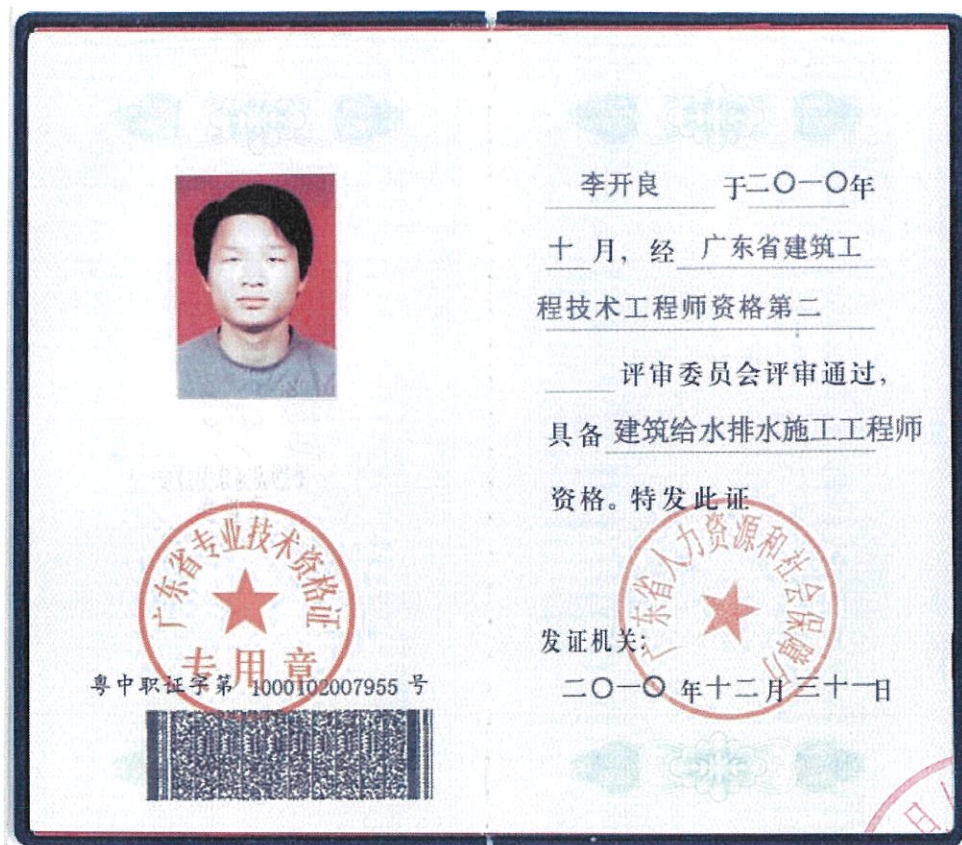 广东省专业技术资格证
专用章
粤中职证字第 1000102007955 号
李开良 于二〇一〇年
十月，经 广东省建筑工
程技术工程师资格第二
评审委员会评审通过，
具备 建筑给水排水施工工程师
资格。特发此证
广东省人力资源和社会保障厅
发证机关：
二〇一〇年十二月三十一日